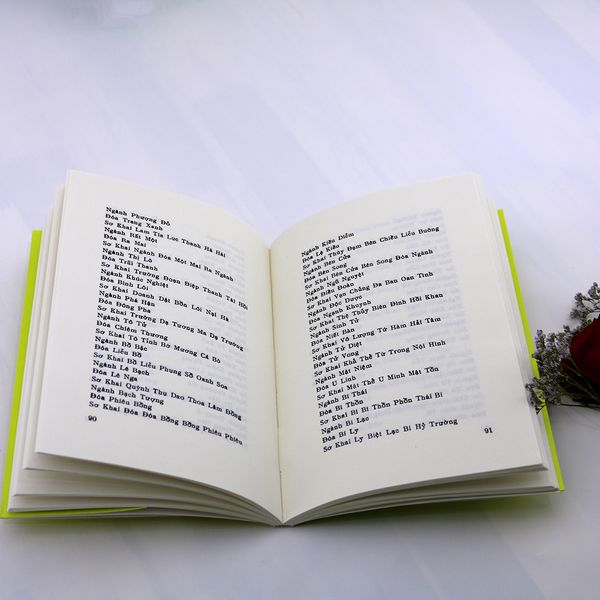 Ngành Phượng Đỗ
Đóa Trang Xanh
Sơ Khai Lam Tía Lục Thanh Hà Hải
Ngành Rất Một
Đóa Ra Mai
Sơ Khai Ngành Đóa Một Mai Ra Ngành
Ngành Thị Lô
Đóa Trãi Thanh
Sơ Khai Trường Đoạn Điệp Thanh Tái Hồi
Ngành Khúc Nghiệt
Đóa Bình Lôi
Sơ Khai Doanh Dật Bồn Lôi Nại Hà
Ngành Phế Hận
Đóa Đông Pha
Sơ Khai Trương Dạ Tương Ma Dạ Trường
Ngành Tô Tử
Đóa Chiêm Thương
Sơ Khai Tô Tỉnh Bờ Mương Cá Bó
Ngành Bồ Bặc
Đóa Liễu Bồ
Sơ Khai Bồ Liễu Phụng Sồ Oanh Soa
Ngành Lê Bạch
Đóa Lê Nga
Sơ Khai Quỳnh Thụ Dao Thoa Lâm Bồng
Ngành Bạch Tượng
Đóa Phiêu Bồng
Sơ Khai Đóa Đóa Bồng Bồng Phiêu Phiêu
90
Ngành Kiều Diễm
Đóa Lệ Kiều
Sơ Khai Thùy Đạm Bên Chiều Liễu Buông
Ngành Bến Cửa
Đóa Bên Song
Sơ Khai Bên Cửa Bên Song Đóa Ngành
Ngành Ngũ Nguyệt
Đóa Điêu Đoản
Sơ Khai Vạn Chồng Đa Ban Oan Tình
Ngành Độc Dược
Đóa Ngành Khuynh
Sơ Khai Thệ Thủy Biên Đình Hồi Khan
Ngành Sinh Tử
Đóa Niết Bàn
Sơ Khai Vô Lượng Tứ Hàm Hải Tâm
Ngành Tử Diệt
Đóa Tử Vong
Sơ Khai Khả Thể Tử Trong Nội Hình
Ngành Mật Niệm
Đóa U Linh
Sơ Khai Một Thể U Minh Mật Tồn
Ngành Bi Thái
Đóa Bi Thồn
Sơ Khai Bi Bi Thồn Phồn Thái Bi
Ngành Bi Lạc
Đóa Bi Ly
Sơ Khai Ly Biệt Lạc Bi Hỷ Trường
91